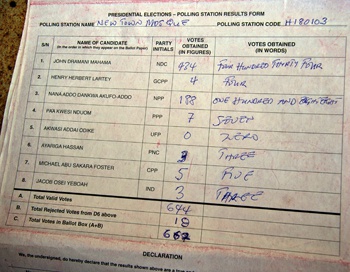 PRESIDENTIAL ELECTIONS – POLLING STATION RESULTS FORM
POLLING STATION NAME NEW TOWN MOSQUE POLLING STATION CODE H180103
S/N NAME OF CANDIDATE (In the order in which they appear on the Ballot Paper) PARTY INITIALS VOTES OBTAINED (IN FIGURES) VOTES OBTAINED (IN WORDS)
1. JOHN DRAMANI MAHAMA NDC 434 FOUR HUNDRED THIRTY FOUR
2. HENRY HERBERT LARTEY GCPP 4 FOUR
3. NANA ADDO DANKWA AKUFO-ADDO NPP 188 ONE HUNDRED AND EIGHTY EIGHT
4. PAA KWESI NDUOM PPP 7 SEVEN
5. AKWASI ADDAI ODIKE UFP 0 ZERO
6. AYARIGA HASSAN PNC 3 THREE
7. MICHAEL ABU SAKARA FOSTER CPP 5 FIVE
8. JACOB OSEI YEBOAH IND 3 THREE
A. Total Valid Votes 644
B. Total Rejected Votes from D6 above 18
C. Total Votes in Ballot Box (A+B) 662
DECLARATION
We, the undersigned, do hereby declare that the results shown above are a true